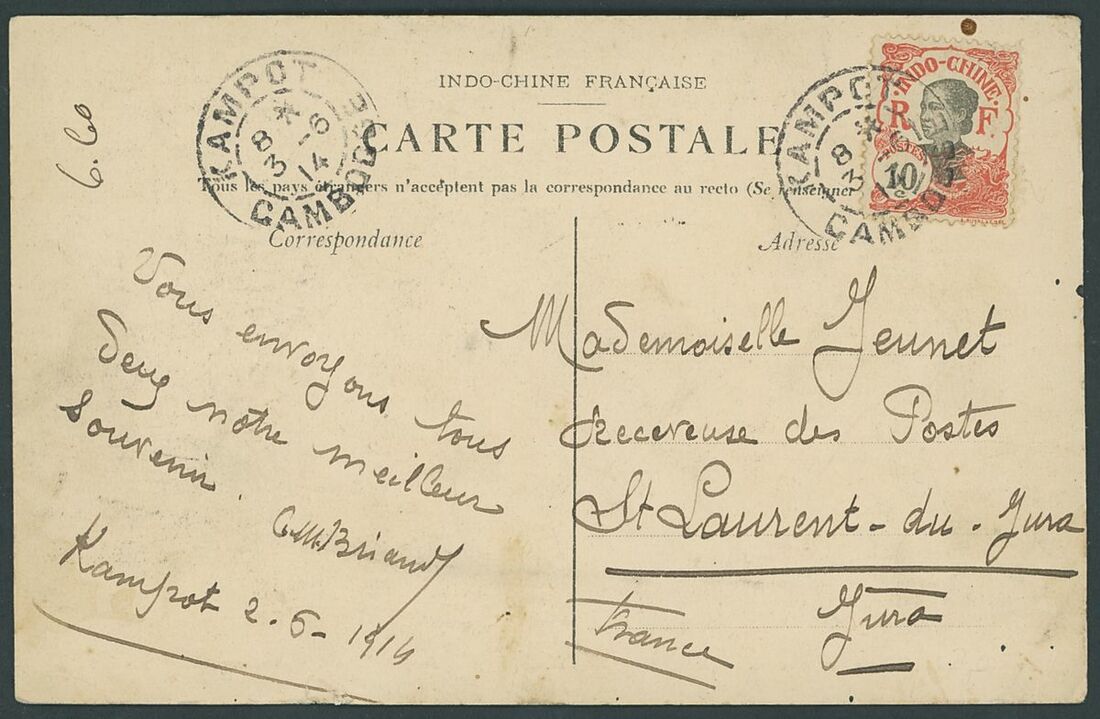 INDO-CHINE FRANÇAISE
CARTE POSTALE
Tous les pays étrangers n'acceptent pas la correspondance au recto (Se renseigner
Correspondance
Adresse
6.60
KAMPOT
8 * 3-6 14
CAMBODGE
KAMPOT
8 *
3
CAMBO
INDO-CHINE
R F
POSTES
10
Vous envoyons tous
deux notre meilleur
Souvenir.
Briand
Kampot 2-6-1914
Mademoiselle Jeunet
Receveuse des Postes
St Laurent-du-Jura
Jura
France